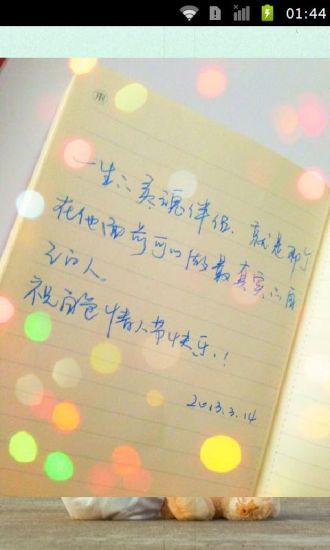 01:44
一生之灵魂伴侣，就是那个
在他面前可以做最真实的自
己的人。
祝白色情人节快乐！！
2013.3.14